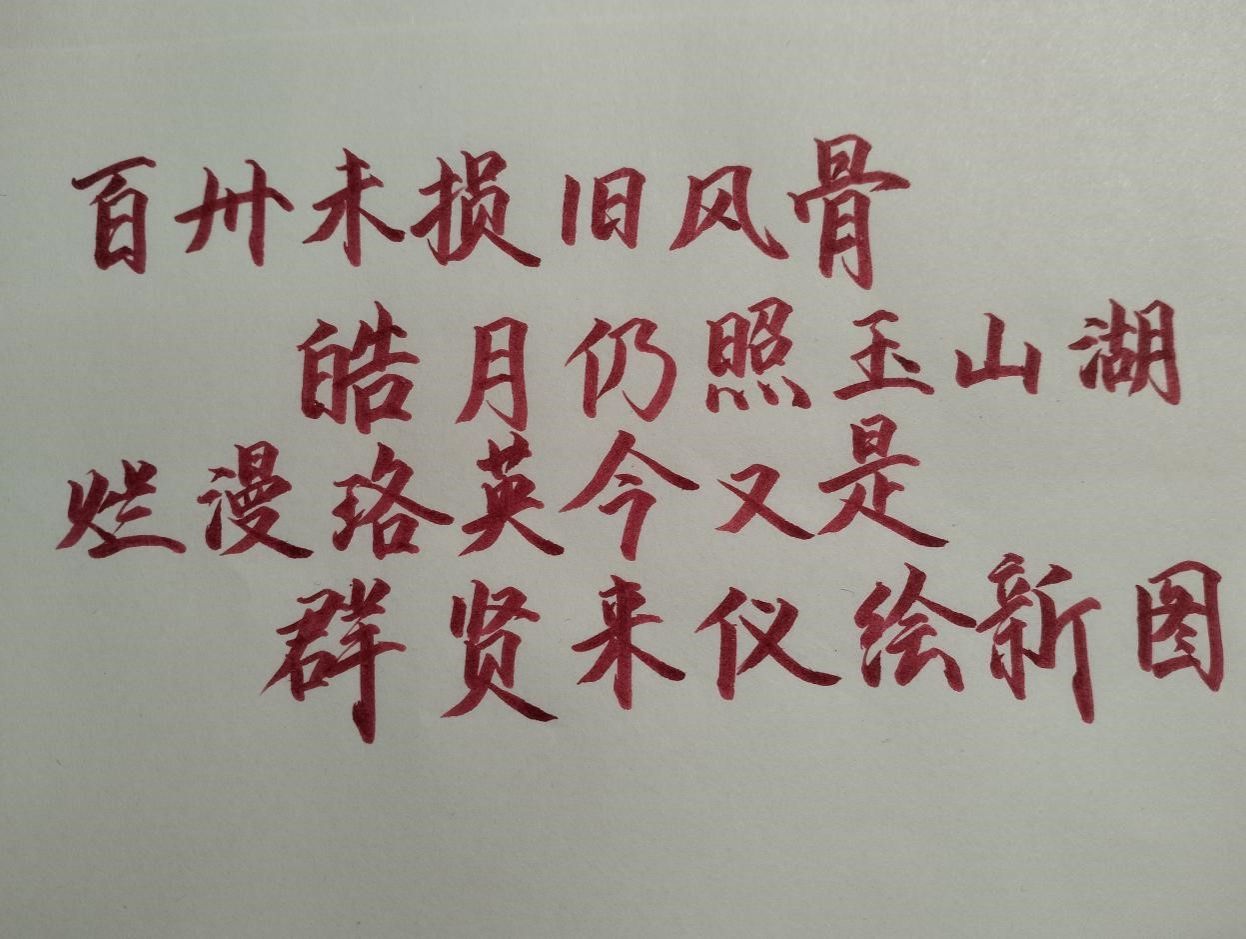 百卅未损旧风骨
皓月仍照玉山湖
烂漫珞英今又是
群贤来仪绘新图